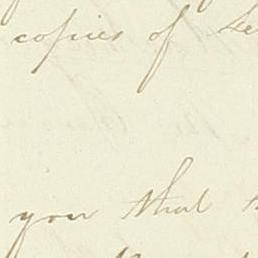 copies of
you that